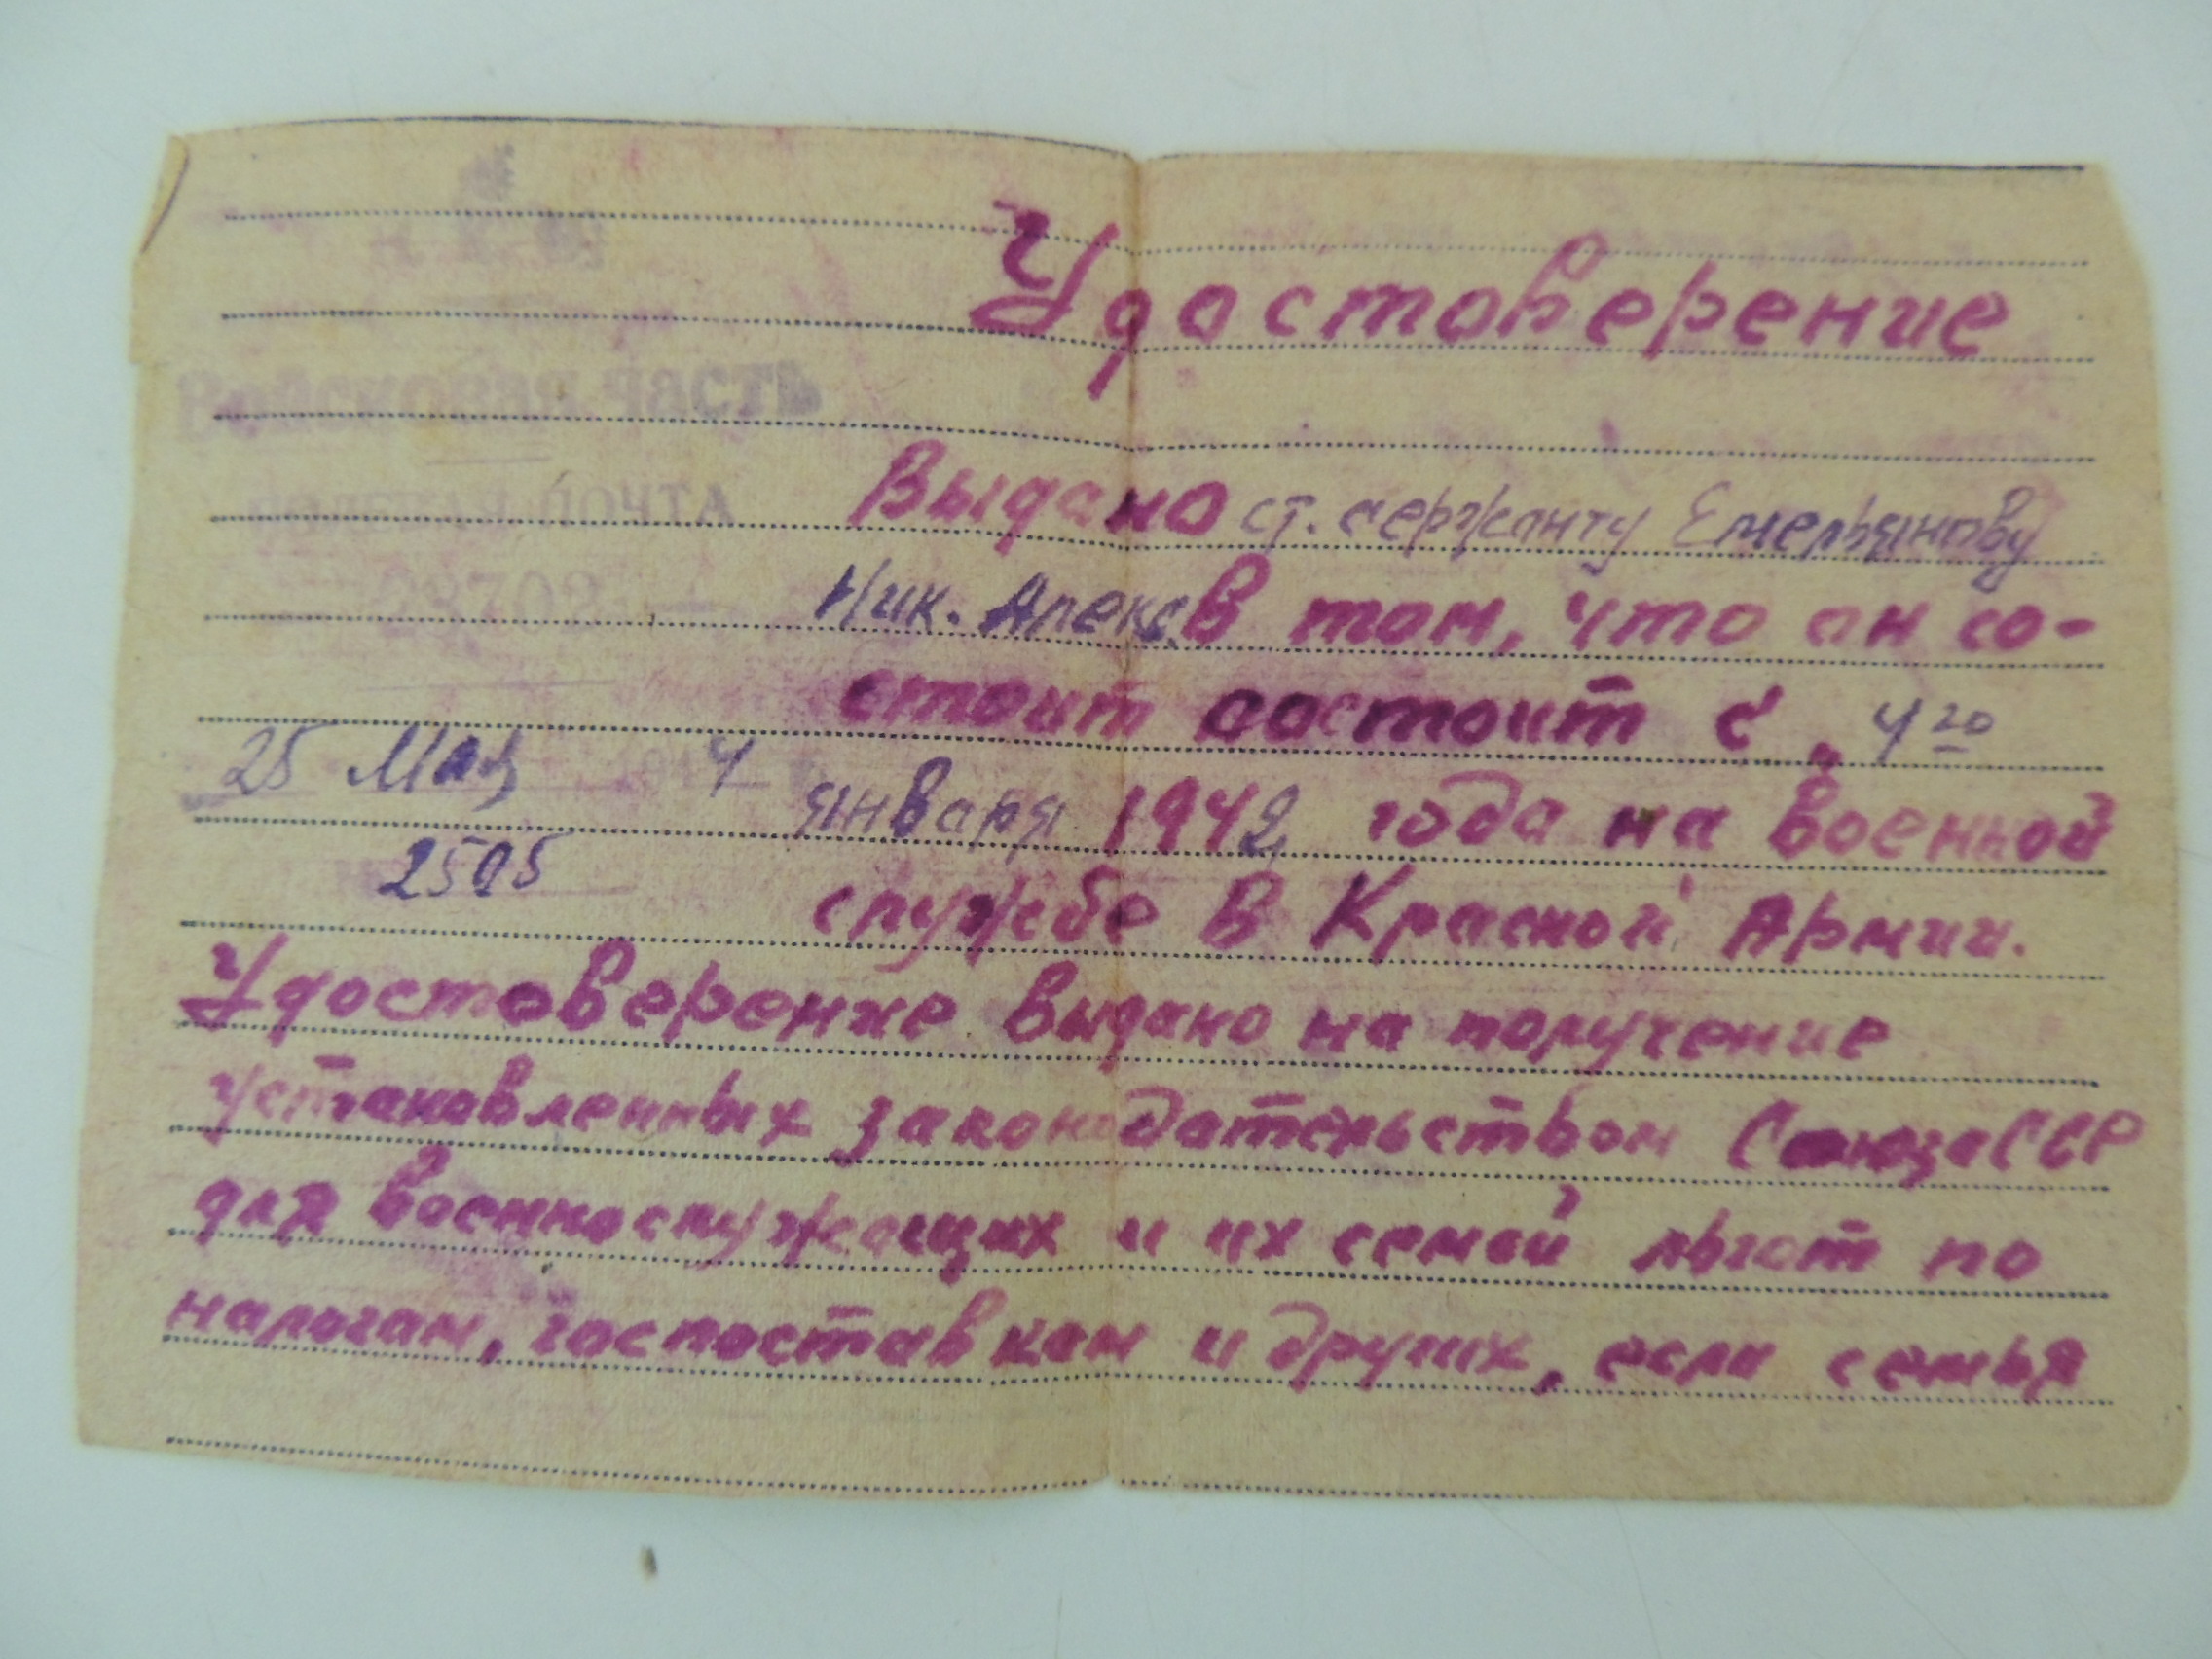 Удостоверение
Войсковая часть
Выдано ст. сержанту Емельянову
Ник. Алекс. в том, что он со-
стоит состоит с „ 4го
25 Мая 4
января 1942 года на военной
2505
службе в Красной Армии.
Удостоверение выдано на получение
установленных законодательством Союза ССР
для военнослужащих и их семей льгот по
налогам, госпоставкам и других, если семья